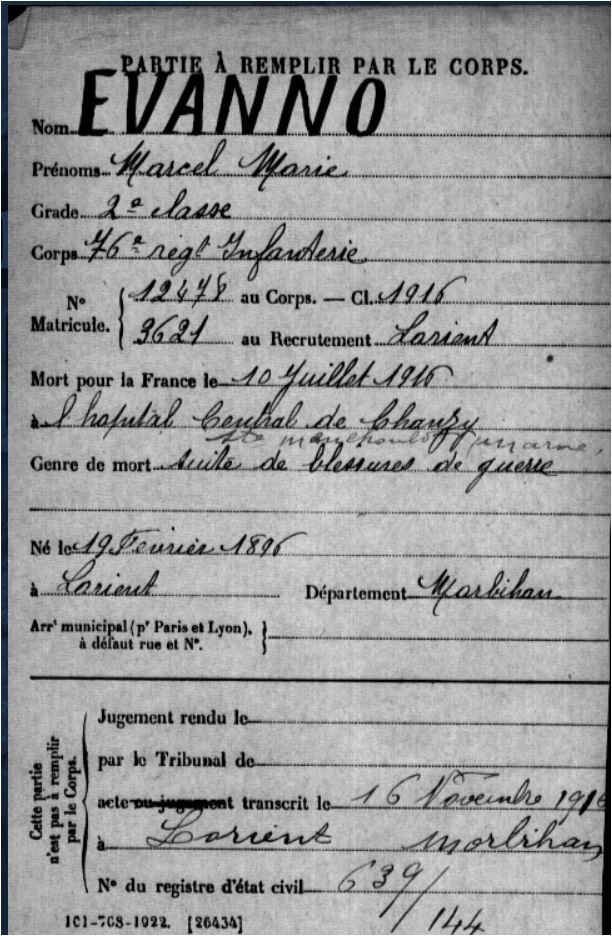 PARTIE À REMPLIR PAR LE CORPS.
Nom EVANNO
Prénoms Marcel Marie
Grade 2e classe
Corps 76e régt Infanterie
N° Matricule. 12478 au Corps. — Cl. 1916
3621 au Recrutement Lorient
Mort pour la France le 10 Juillet 1916
à l'hopital Central de Chanzy
Ste manehould marne
Genre de mort suite de blessures de guerre
Né le 19 Fevrier 1896
à Lorient Département Morbihan
Arrt municipal (pr Paris et Lyon),
à défaut rue et N°.
Cette partie n'est pas à remplir par le Corps.
Jugement rendu le
par le Tribunal de
acte ou jugement transcrit le 16 Novembre 1916
à Lorient Morbihan
N° du registre d'état civil 639/144
101-708-1922. [26434]